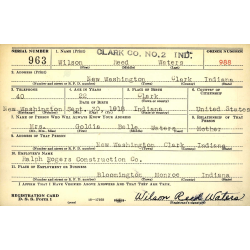 SERIAL NUMBER 1. NAME (Print) CLARK CO. NO. 2 IND. ORDER NUMBER
963 Wilson Reed Waters 988
2. ADDRESS (Print)
New Washington Clark Indiana
3. TELEPHONE 4. AGE IN YEARS 5. PLACE OF BIRTH 6. COUNTRY OF CITIZENSHIP
40 22 Clark
DATE OF BIRTH
New Washington Sept. 30, 1918 Indiana United States
7. NAME OF PERSON WHO WILL ALWAYS KNOW YOUR ADDRESS 8. RELATIONSHIP OF THAT PERSON
Mrs. Goldia Belle Waters Mother
9. ADDRESS OF THAT PERSON
New Washington Clark Indiana
10. EMPLOYER'S NAME
Ralph Rogers Construction Co.
11. PLACE OF EMPLOYMENT OR BUSINESS
Bloomington Monroe Indiana
I AFFIRM THAT I HAVE VERIFIED ABOVE ANSWERS AND THAT THEY ARE TRUE.
REGISTRATION CARD
D. S. S. Form 1 Wilson Reed Waters